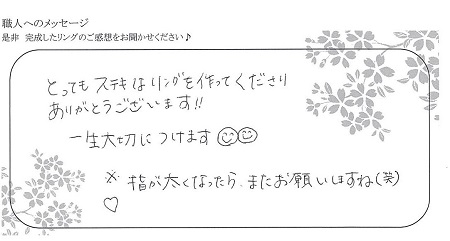 職人へのメッセージ
是非 完成したリングのご感想をお聞かせください♪
とってもステキなリングを作ってくださり
ありがとうございます!!
一生大切につけます☺☺
※ 指が太くなったら、またお願いしますね(笑)
♡